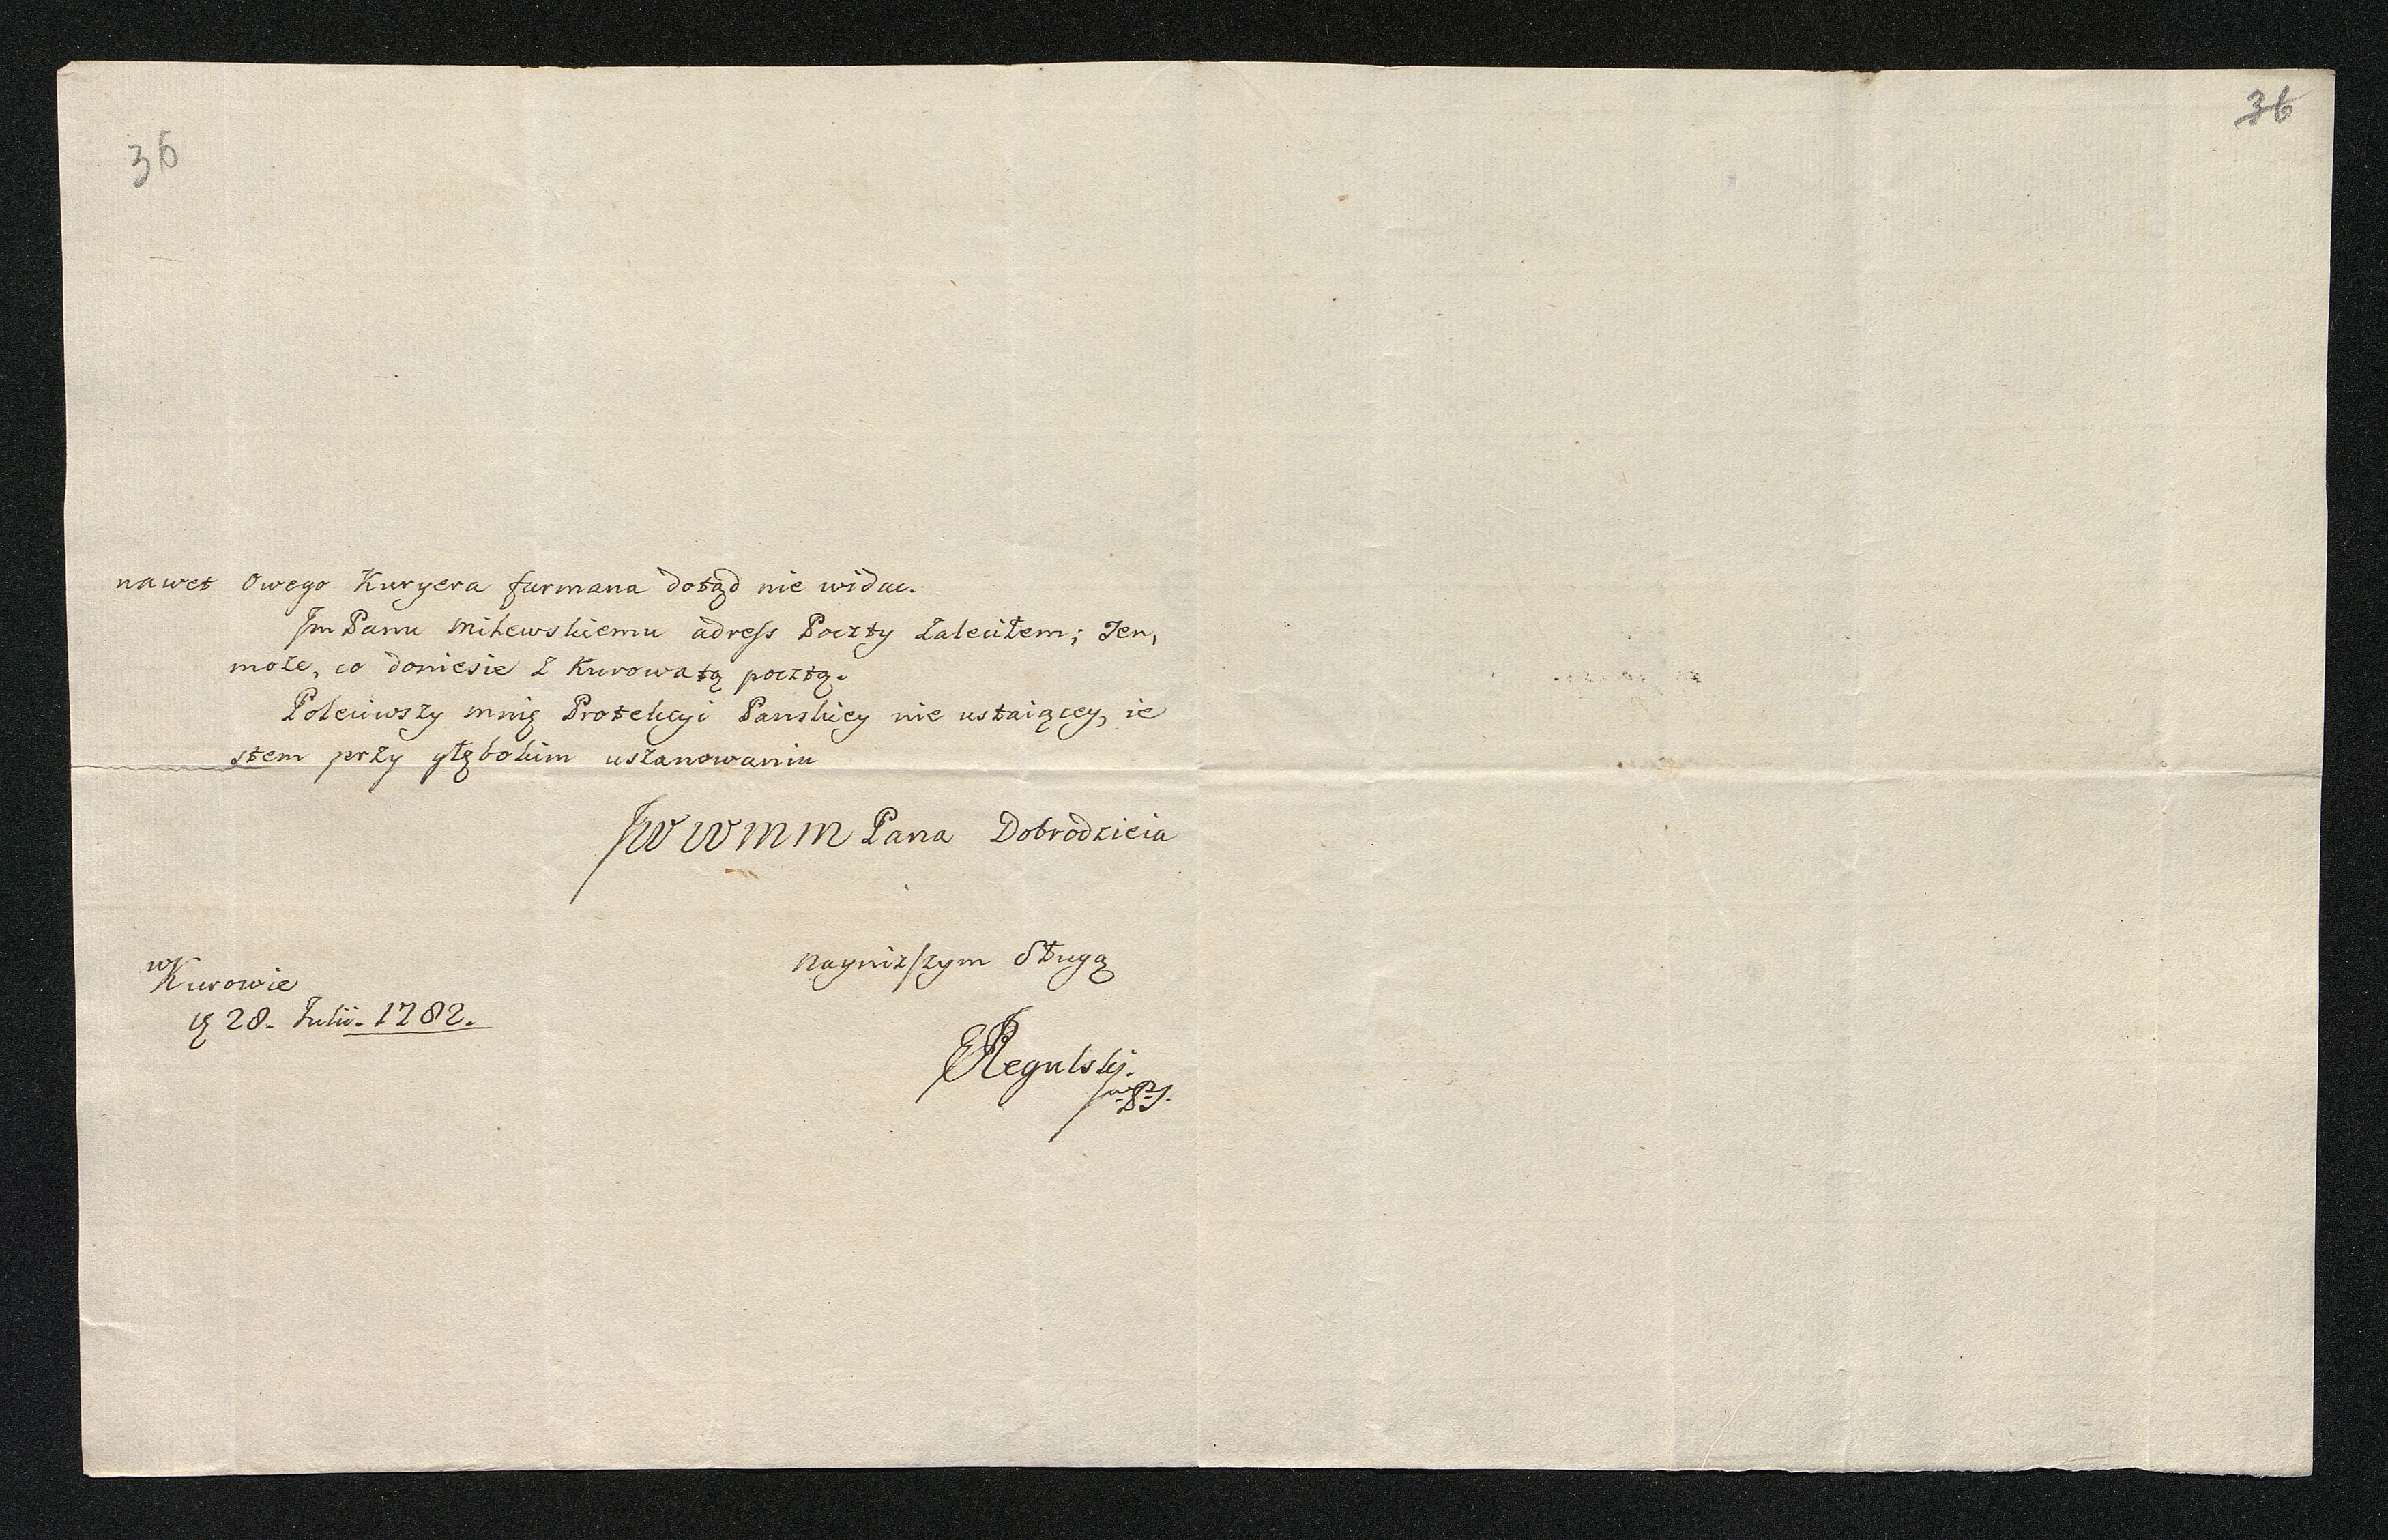 36
36
nawet Owego Kuryera furmana dotąd nie widac.
Jm Panu Milewskiemu adress Poczty Zaleciłem; Ten,
może, co doniesie z Kurowa tą pocztą.
Poleciwszy mnię Protekcyi Panskiey nie ustaiącey, ie
stem przy głębokim uszanowaniu
JWWMM Pana Dobrodzieia
w Kurowie
28. Julii. 1782.
nayniższym Sługą
Regulski.